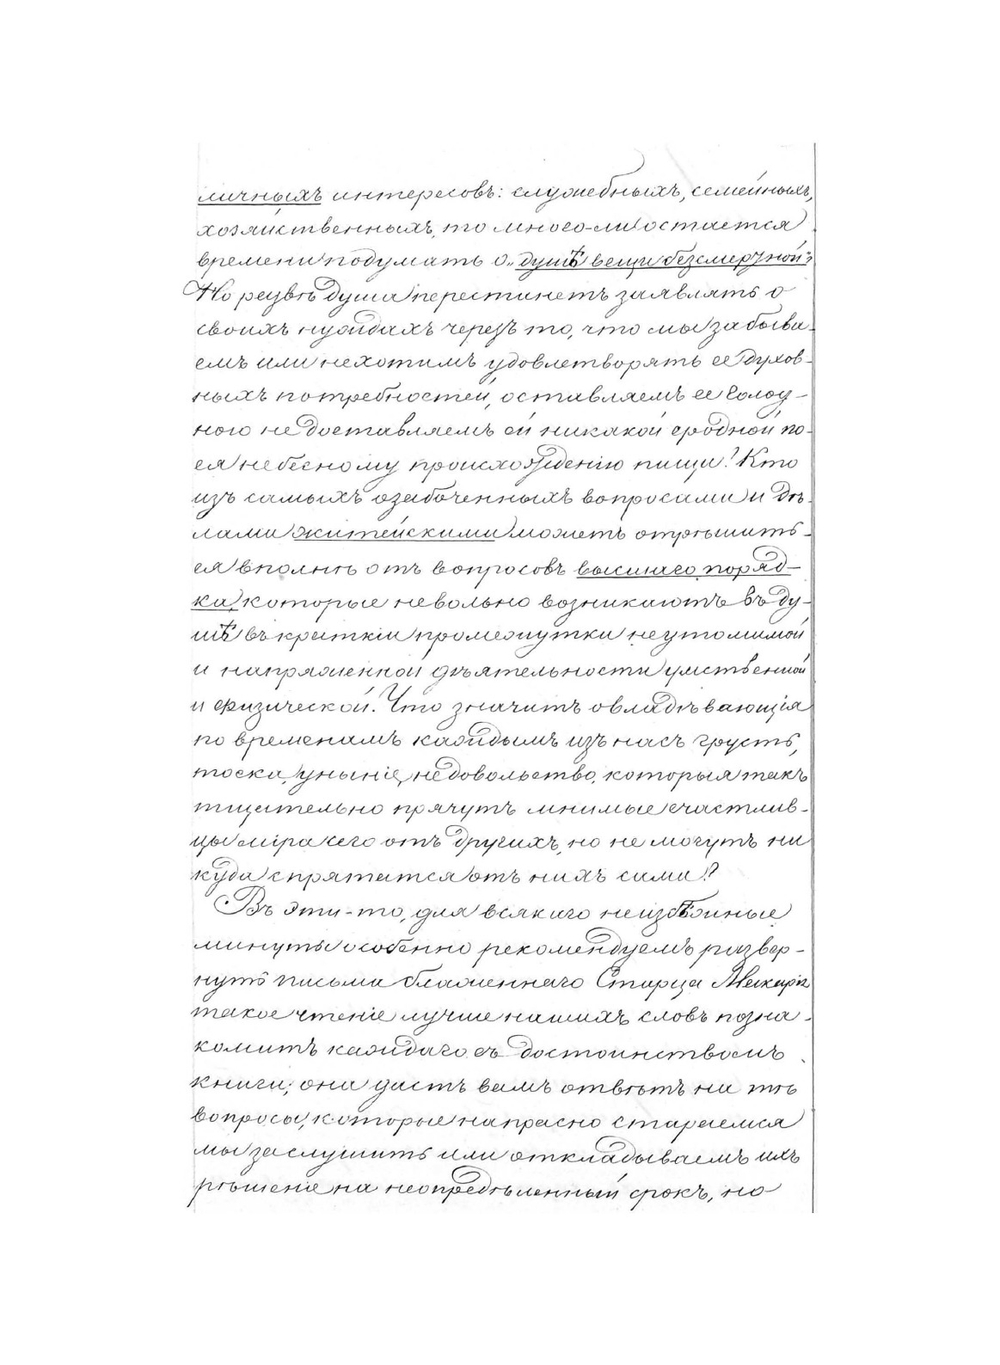 личныхъ интересовъ: служебныхъ, семейныхъ,
хозяйственныхъ, то много-ли остается
времени подумать о „душѣ вещи безсмертной“?
Но развѣ душа перестанетъ заявлять о
своихъ нуждахъ черезъ то, что мы забыва-
емъ или нехотимъ удовлетворять ее духов-
ныхъ потребностей, оставляемъ ее голод-
ною не доставляемъ ей никакой сродной по-
ея небесному происхожденію пищи? Кто
изъ самыхъ озабоченныхъ вопросами и дѣ-
лами житейскими можетъ отрѣшить-
ся вполнѣ отъ вопросовъ высшаго поряд-
ка, которые невольно возникаютъ въ ду-
шѣ въ краткіи промежутки неутомимой
и напряженной дѣятельности умственной
и физической. Что значитъ овладѣвающія
по временамъ каждымъ изъ насъ грусть,
тоска, уныніе, недовольство, которыя такъ
тщательно прячутъ мнимые счастлив-
цы міра сего отъ другихъ, но не могутъ ни
куда спрятатся отъ нихъ сами?
Въ эти-то, для всякаго неизбѣжные
минуты особенно рекомендуемъ развер-
нуть письма блаженнаго Старца Макарія
такое чтеніе лучше нашихъ словъ позна-
комитъ каждаго съ достоинствомъ
книги; она дастъ вамъ отвѣтъ на тѣ
вопросы, которые напрасно стараемся
мы заглушить или откладываемъ ихъ
рѣшеніе на неопредѣленный срокъ, но